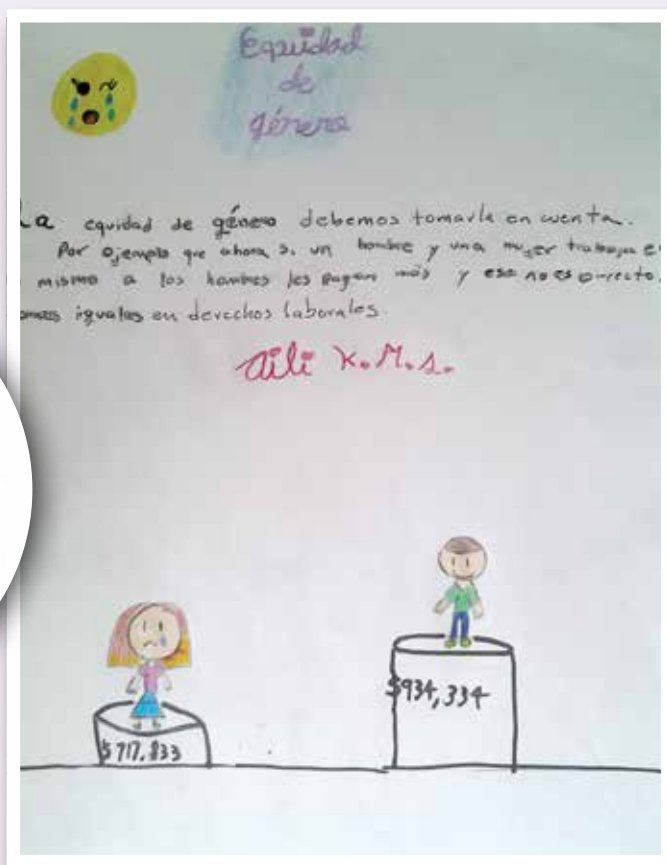 Equidad
de
género
La equidad de género debemos tomarla en cuenta.
Por ejemplo que ahora si un hombre y una mujer trabajan en
mismo a los hombres les pagan más y eso no es correcto.
iguales en derechos laborales.
Aili K.M.S.
$934,334
$717,833